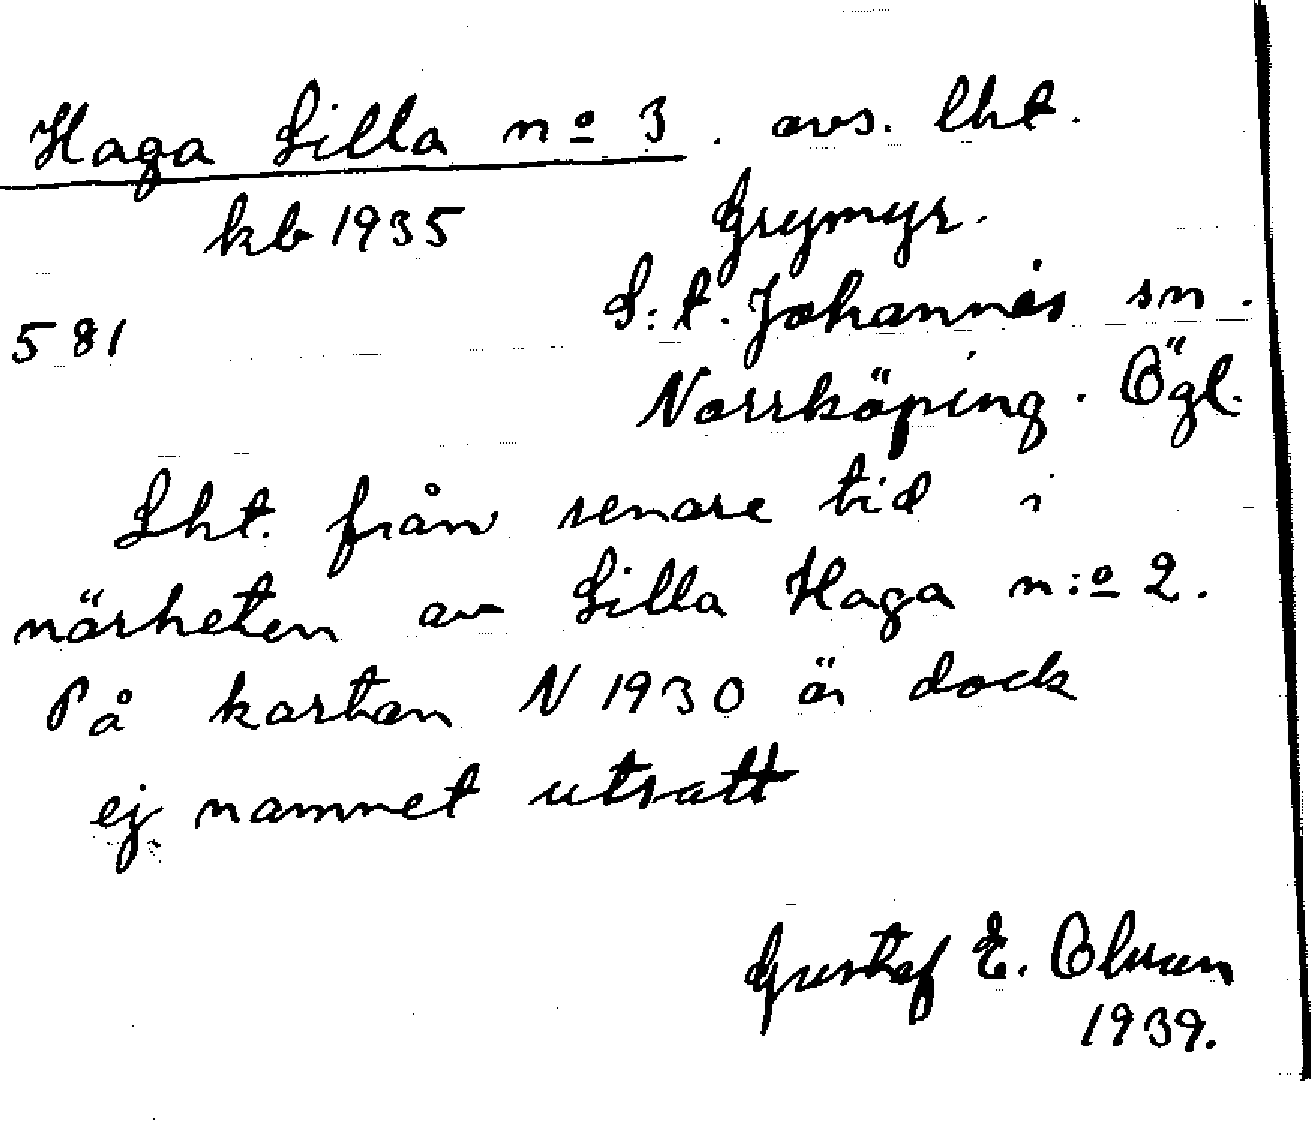 Haga Lilla nº 3. avs. lht.
kb 1935 Grymyr.
581 S:t. Johannes sn.
Norrköping. Ögl.
Lht. från senare tid i
närheten av Lilla Haga n:º 2.
På kartan N 1930 är dock
ej namnet utsatt
Gustaf E. Olsson
1939.